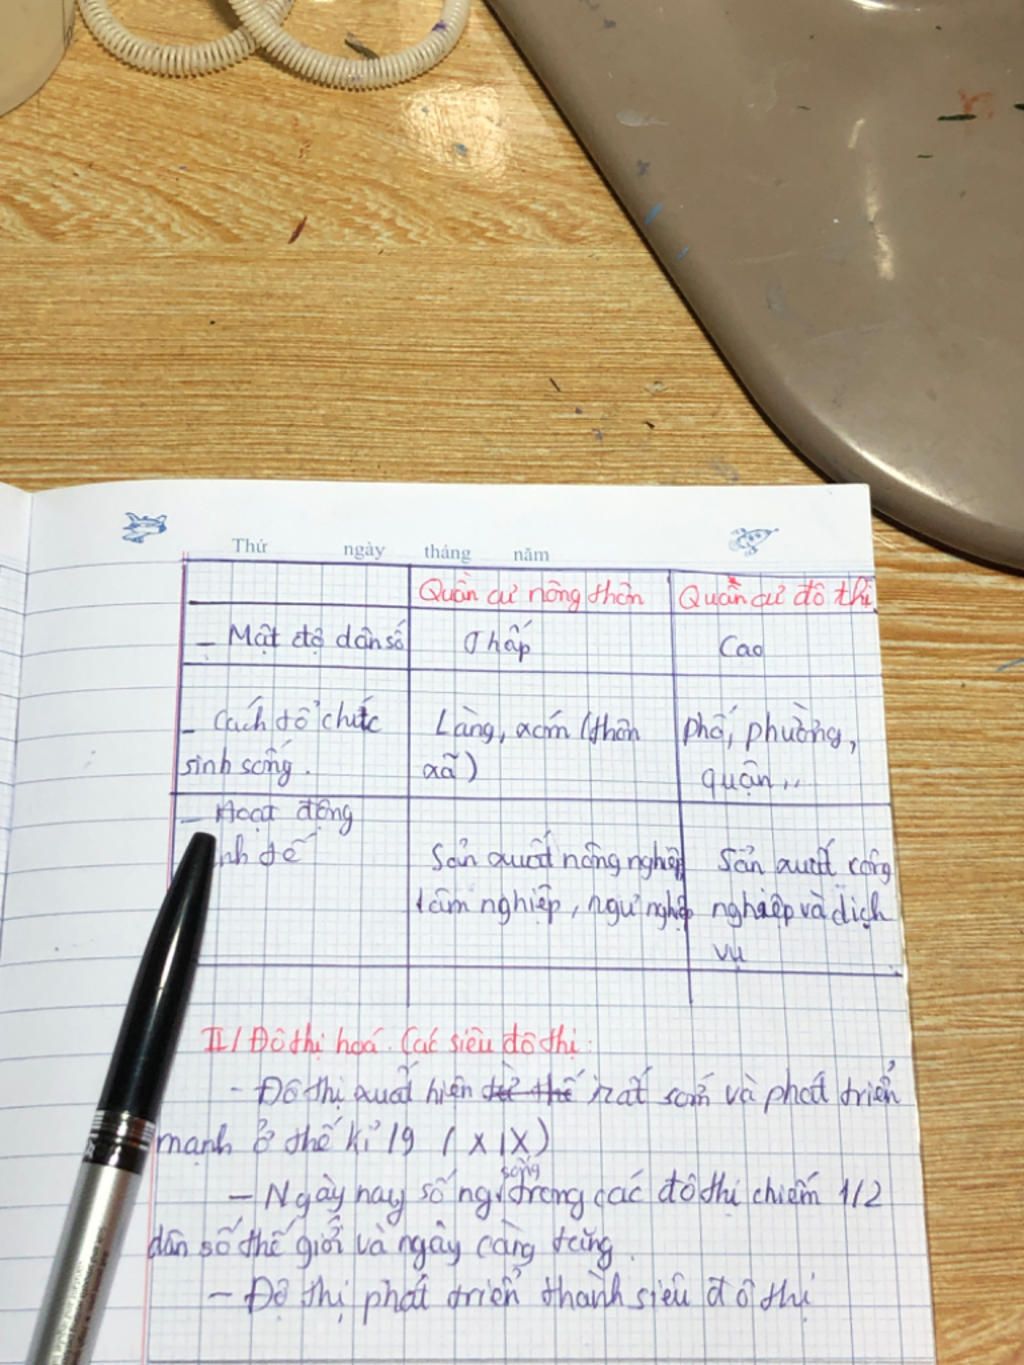 Thứ ngày tháng năm
Quần cư nông thôn Quần cư đô thị
- Mật độ dân số Thấp Cao
- Cách tổ chức Làng, xóm (thôn phố, phường,
sinh sống. xã) quận,..
- Hoạt động
inh tế Sản xuất nông nghiệp Sản xuất công
lâm nghiệp, ngư nghiệp nghiệp và dịch
vụ
II/ Đô thị hoá. Các siêu đô thị:
- Đô thị xuất hiện từ thế rất sớm và phát triển
mạnh ở thế kỉ 19 (XIX)
sống
- Ngày nay số ng trong các đô thị chiếm 1/2
dân số thế giới và ngày càng tăng.
- Đô thị phát triển thành siêu đô thị